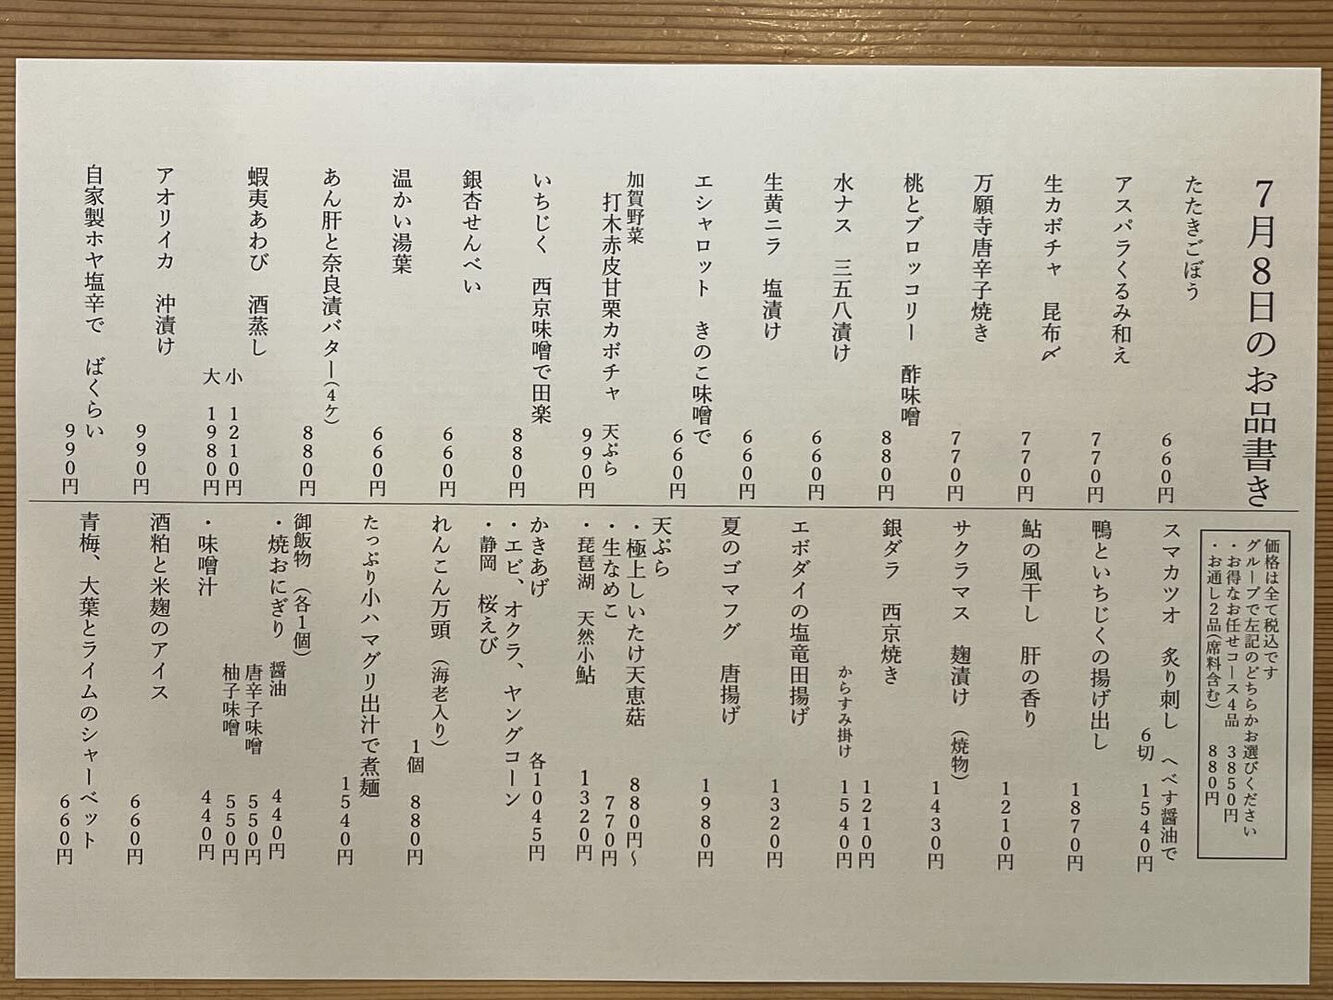 7月8日のお品書き
たたきごぼう
660円
アスパラくるみ和え
770円
生カボチャ　昆布〆
770円
万願寺唐辛子焼き
770円
桃とブロッコリー　酢味噌
880円
水ナス　三五八漬け
660円
生黄ニラ　塩漬け
660円
エシャロット　きのこ味噌で
660円
加賀野菜
打木赤皮甘栗カボチャ　天ぷら
990円
いちじく　西京味噌で田楽
880円
銀杏せんべい
660円
温かい湯葉
660円
あん肝と奈良漬バター(4ケ)
880円
蝦夷あわび　酒蒸し
小　1210円
大　1980円
アオリイカ　沖漬け
990円
自家製ホヤ塩辛で　ばくらい
990円
価格は全て税込です
グループで左記のどちらかお選びください
・お得なお任せコース4品　3850円
・お通し2品(席料含む)　880円
スマカツオ　炙り刺し　へべす醤油で
6切　1540円
鴨といちじくの揚げ出し
1870円
鮎の風干し　肝の香り
1210円
サクラマス　麹漬け　(焼物)
1430円
銀ダラ　西京焼き
1210円
からすみ掛け　1540円
エボダイの塩竜田揚げ
1320円
夏のゴマフグ　唐揚げ
1980円
天ぷら
・極上しいたけ天恵菇　880円～
・生なめこ　770円
・琵琶湖　天然小鮎　1320円
かきあげ　各1045円
・エビ、オクラ、ヤングコーン
・静岡　桜えび
れんこん万頭　(海老入り)
1個　880円
たっぷり小ハマグリ出汁で煮麺
1540円
御飯物　(各1個)
・焼おにぎり　醤油　440円
唐辛子味噌　550円
柚子味噌　550円
・味噌汁　440円
酒粕と米麹のアイス
660円
青梅、大葉とライムのシャーベット
660円